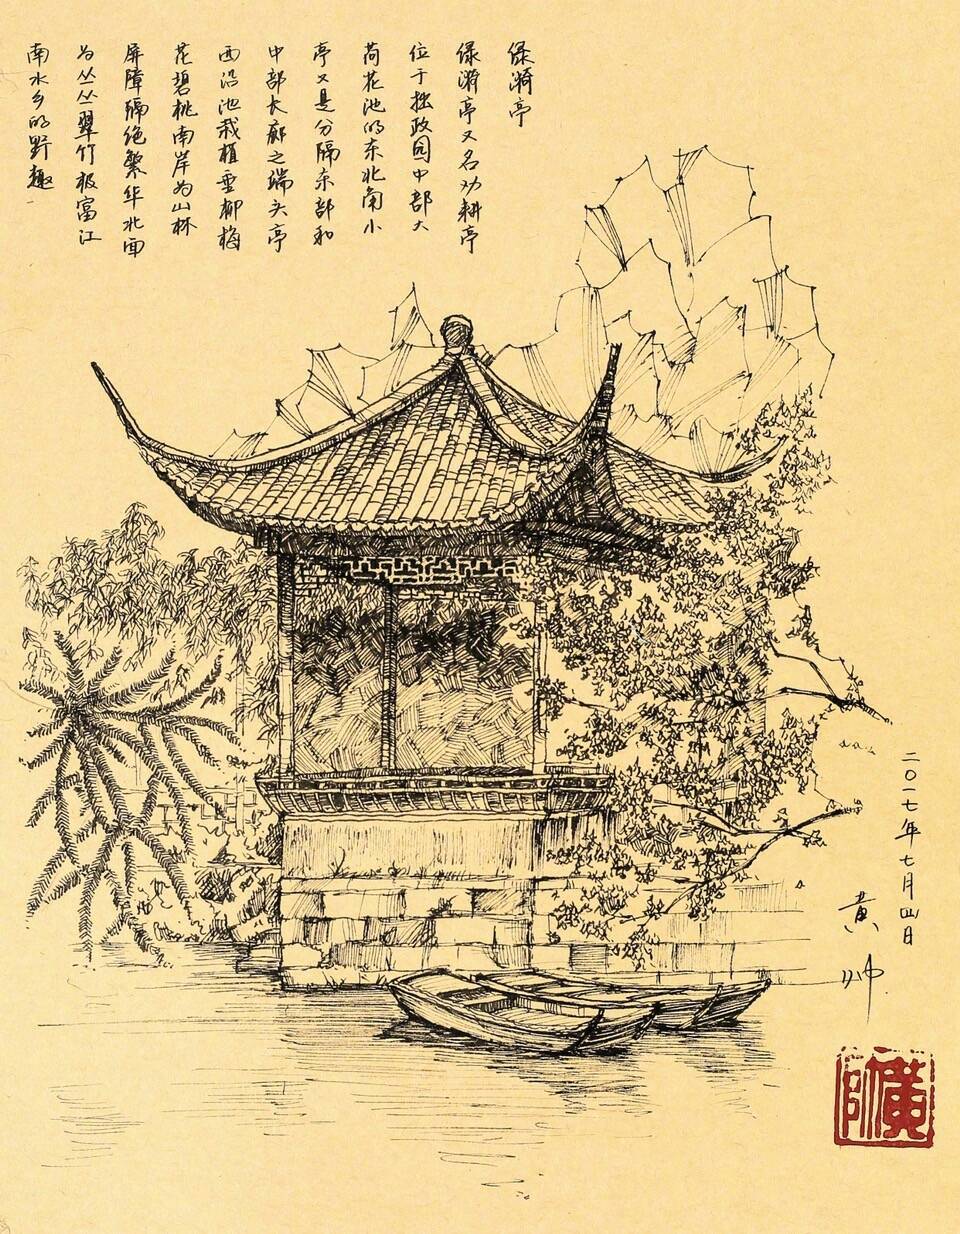 绿漪亭
绿漪亭又名劝耕亭
位于拙政园中部大
荷花池的东北角小
亭又是分隔东部和
中部长廊之端头亭
西沿池栽植垂柳梅
花碧桃南岸为山林
屏障隔绝繁华北面
为丛丛翠竹极富江
南水乡的野趣
二〇一七年七月四日
黄帅